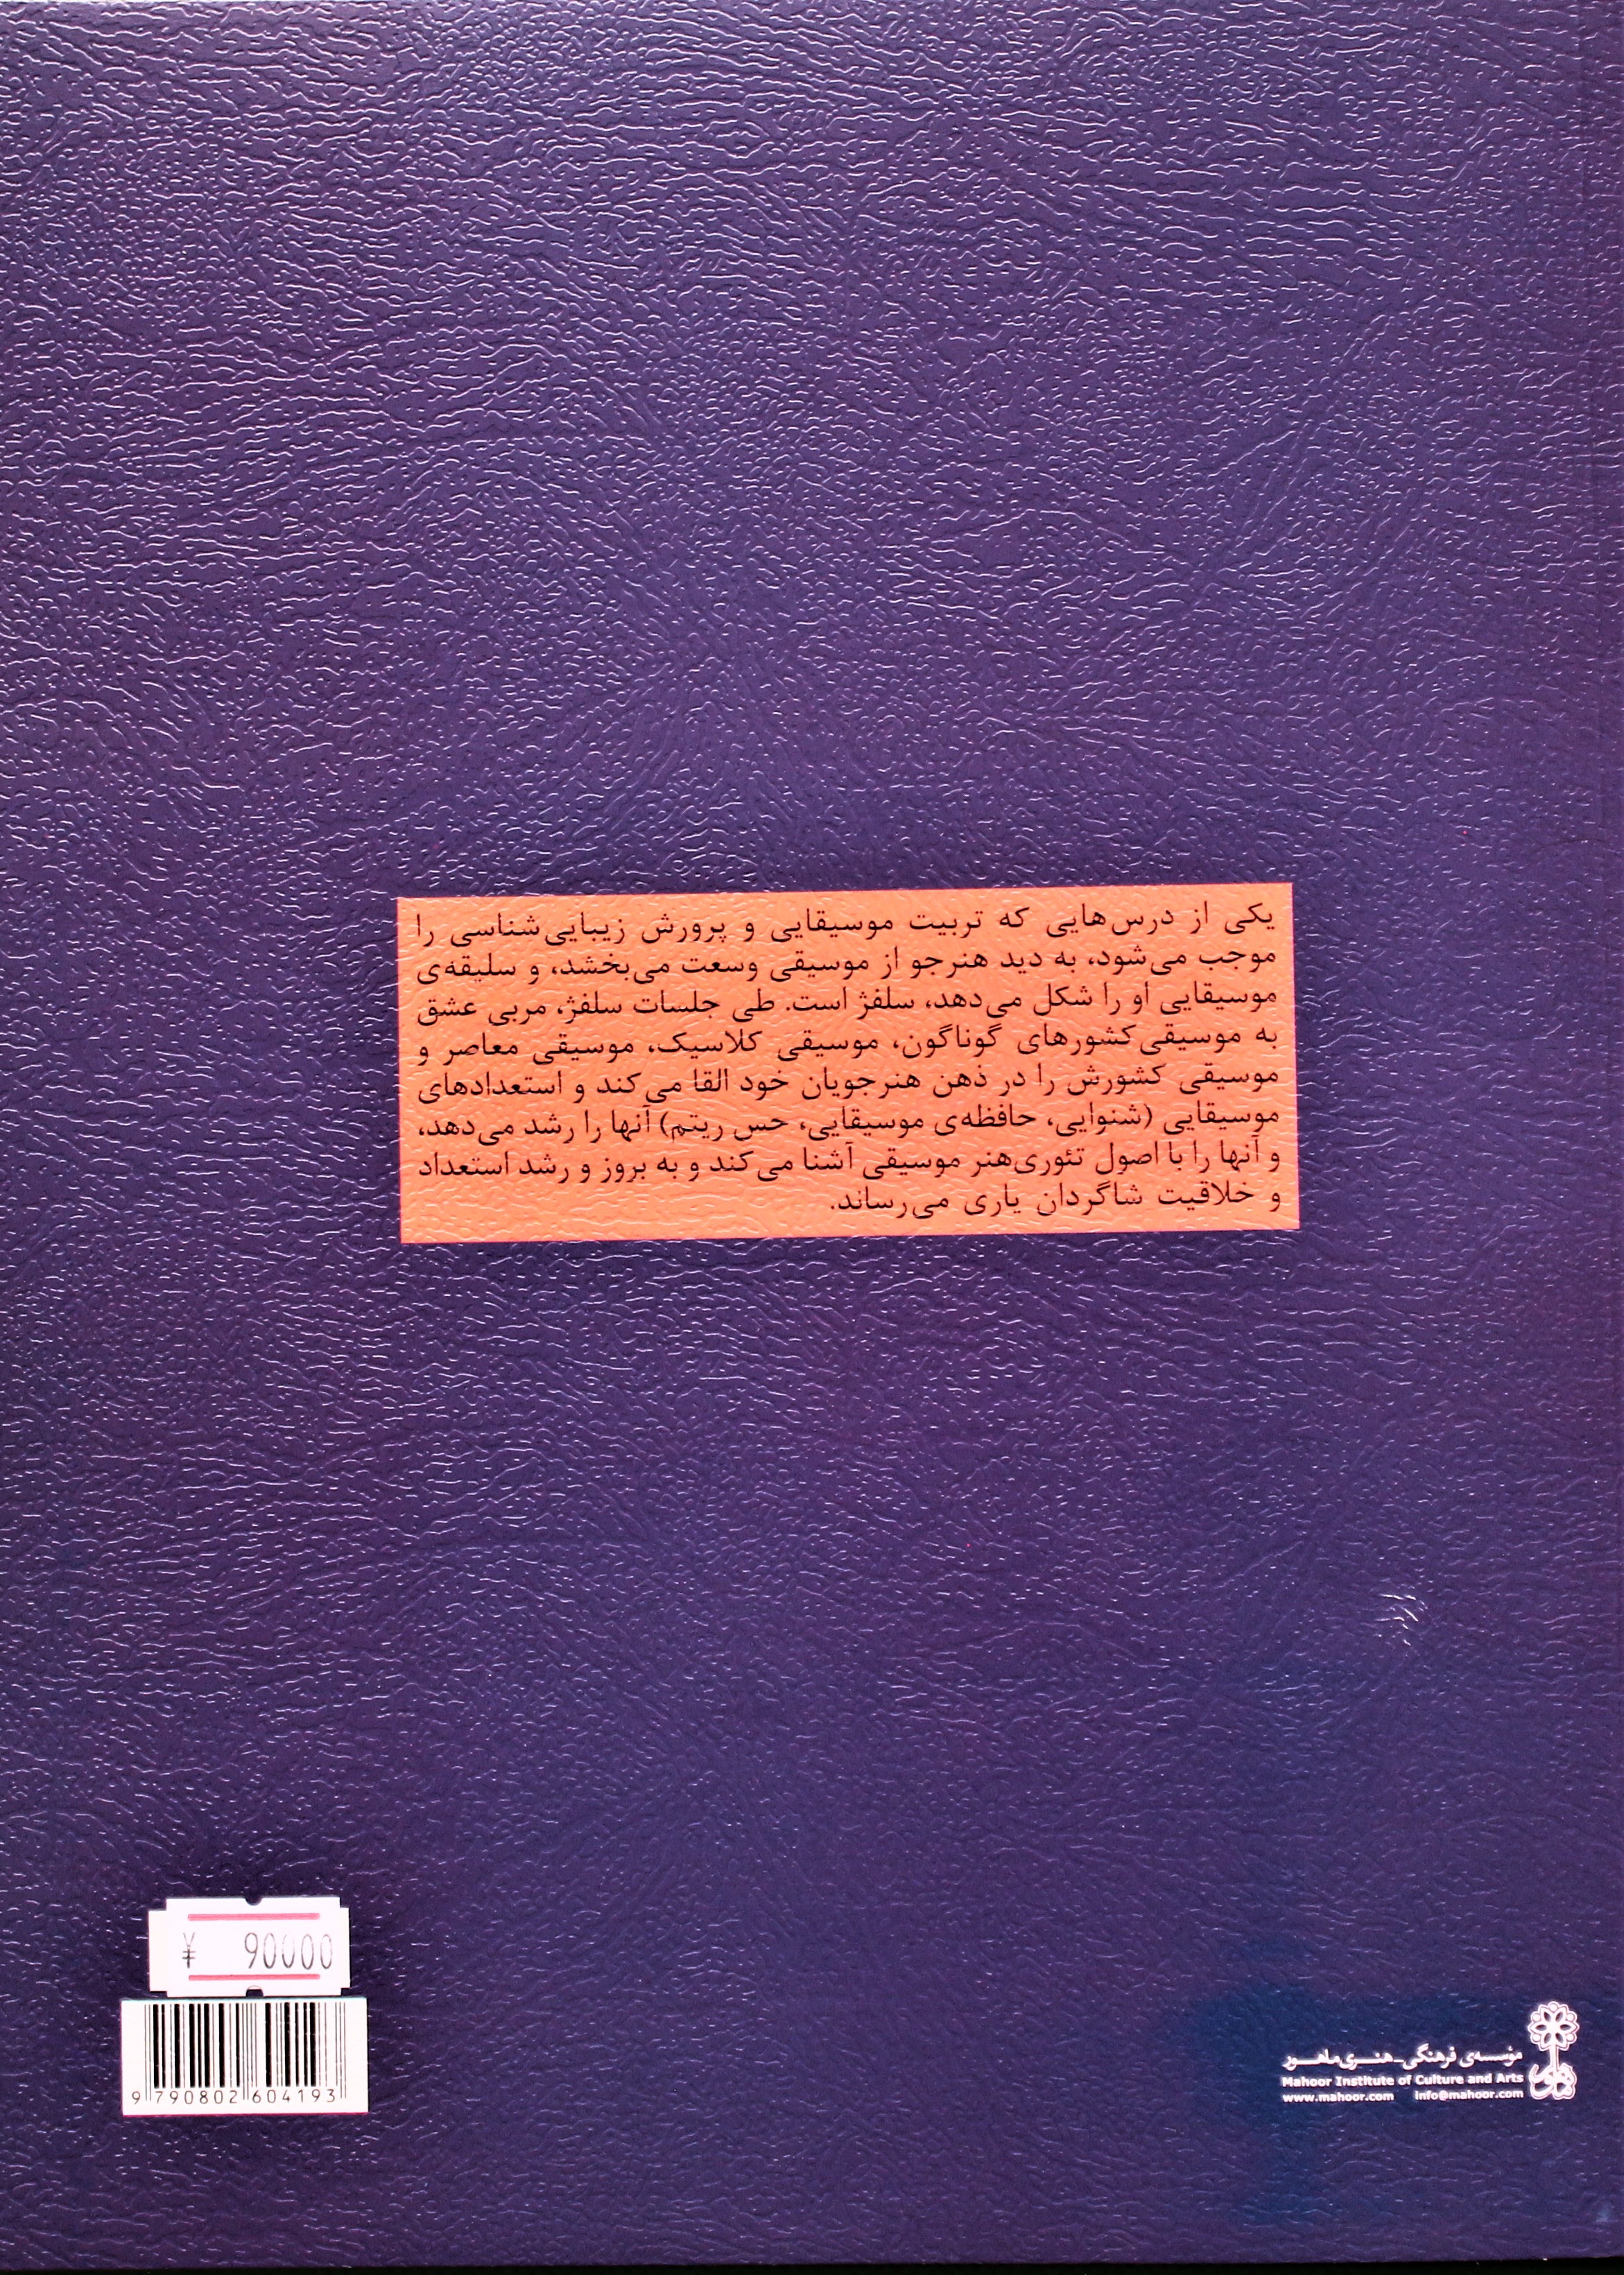 یکی از درس‌هایی که تربیت موسیقایی و پرورش زیبایی‌شناسی را
موجب می‌شود، به دید هنرجو از موسیقی وسعت می‌بخشد، و سلیقه‌ی
موسیقایی او را شکل می‌دهد، سلفژ است. طی جلسات سلفژ، مربی عشق
به موسیقی کشورهای گوناگون، موسیقی کلاسیک، موسیقی معاصر و
موسیقی کشورش را در ذهن هنرجویان خود القا می‌کند و استعدادهای
موسیقایی (شنوایی، حافظه‌ی موسیقایی، حس ریتم) آنها را رشد می‌دهد،
و آنها را با اصول تئوری هنر موسیقی آشنا می‌کند و به بروز و رشد استعداد
و خلاقیت شاگردان یاری می‌رساند.
¥ 90000
9 790802 604193
مؤسسه‌ی فرهنگی-هنری ماهور
Mahoor Institute of Culture and Arts
www.mahoor.com info@mahoor.com
ماهور